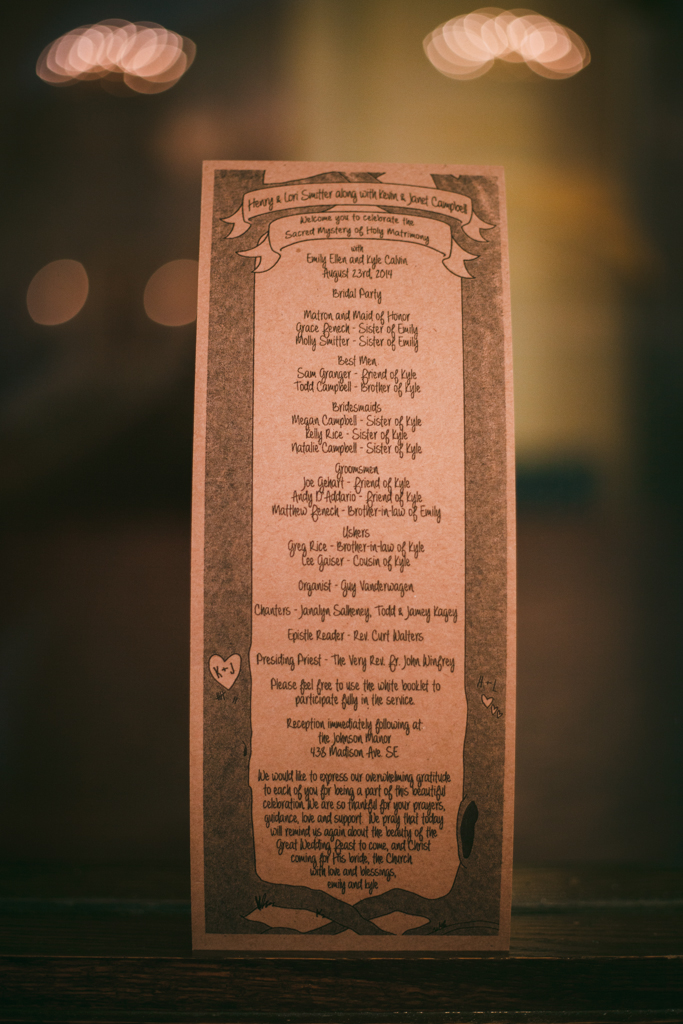 Henry & Lori Smitter along with Kevin & Janet Campbell
Welcome you to celebrate the
Sacred Mystery of Holy Matrimony
with
Emily Ellen and Kyle Calvin
August 23rd, 2014
Bridal Party
Matron and Maid of Honor
Grace Fenech - Sister of Emily
Molly Smitter - Sister of Emily
Best Men
Sam Granger - Friend of Kyle
Todd Campbell - Brother of Kyle
Bridesmaids
Megan Campbell - Sister of Kyle
Kelly Rice - Sister of Kyle
Natalie Campbell - Sister of Kyle
Groomsmen
Joe Gehart - Friend of Kyle
Andy D'Addario - Friend of Kyle
Matthew Fenech - Brother-in-law of Emily
Ushers
Greg Rice - Brother-in-law of Kyle
Lee Gaiser - Cousin of Kyle
Organist - Guy Vanderwagen
Chanters - Janalyn Salheney, Todd & Jamey Kagey
Epistle Reader - Rev. Curt Walters
Presiding Priest - The Very Rev. Fr. John Winfrey
K+J
A+L
Please feel free to use the white booklet to
participate fully in the service.
Reception immediately following at
the Johnson Manor
438 Madison Ave. SE
We would like to express our overwhelming gratitude
to each of you for being a part of this beautiful
celebration. We are so thankful for your prayers,
guidance, love and support. We pray that today
will remind us again about the beauty of the
Great Wedding Feast to come, and Christ
coming for His bride, the Church.
with love and blessings,
emily and kyle